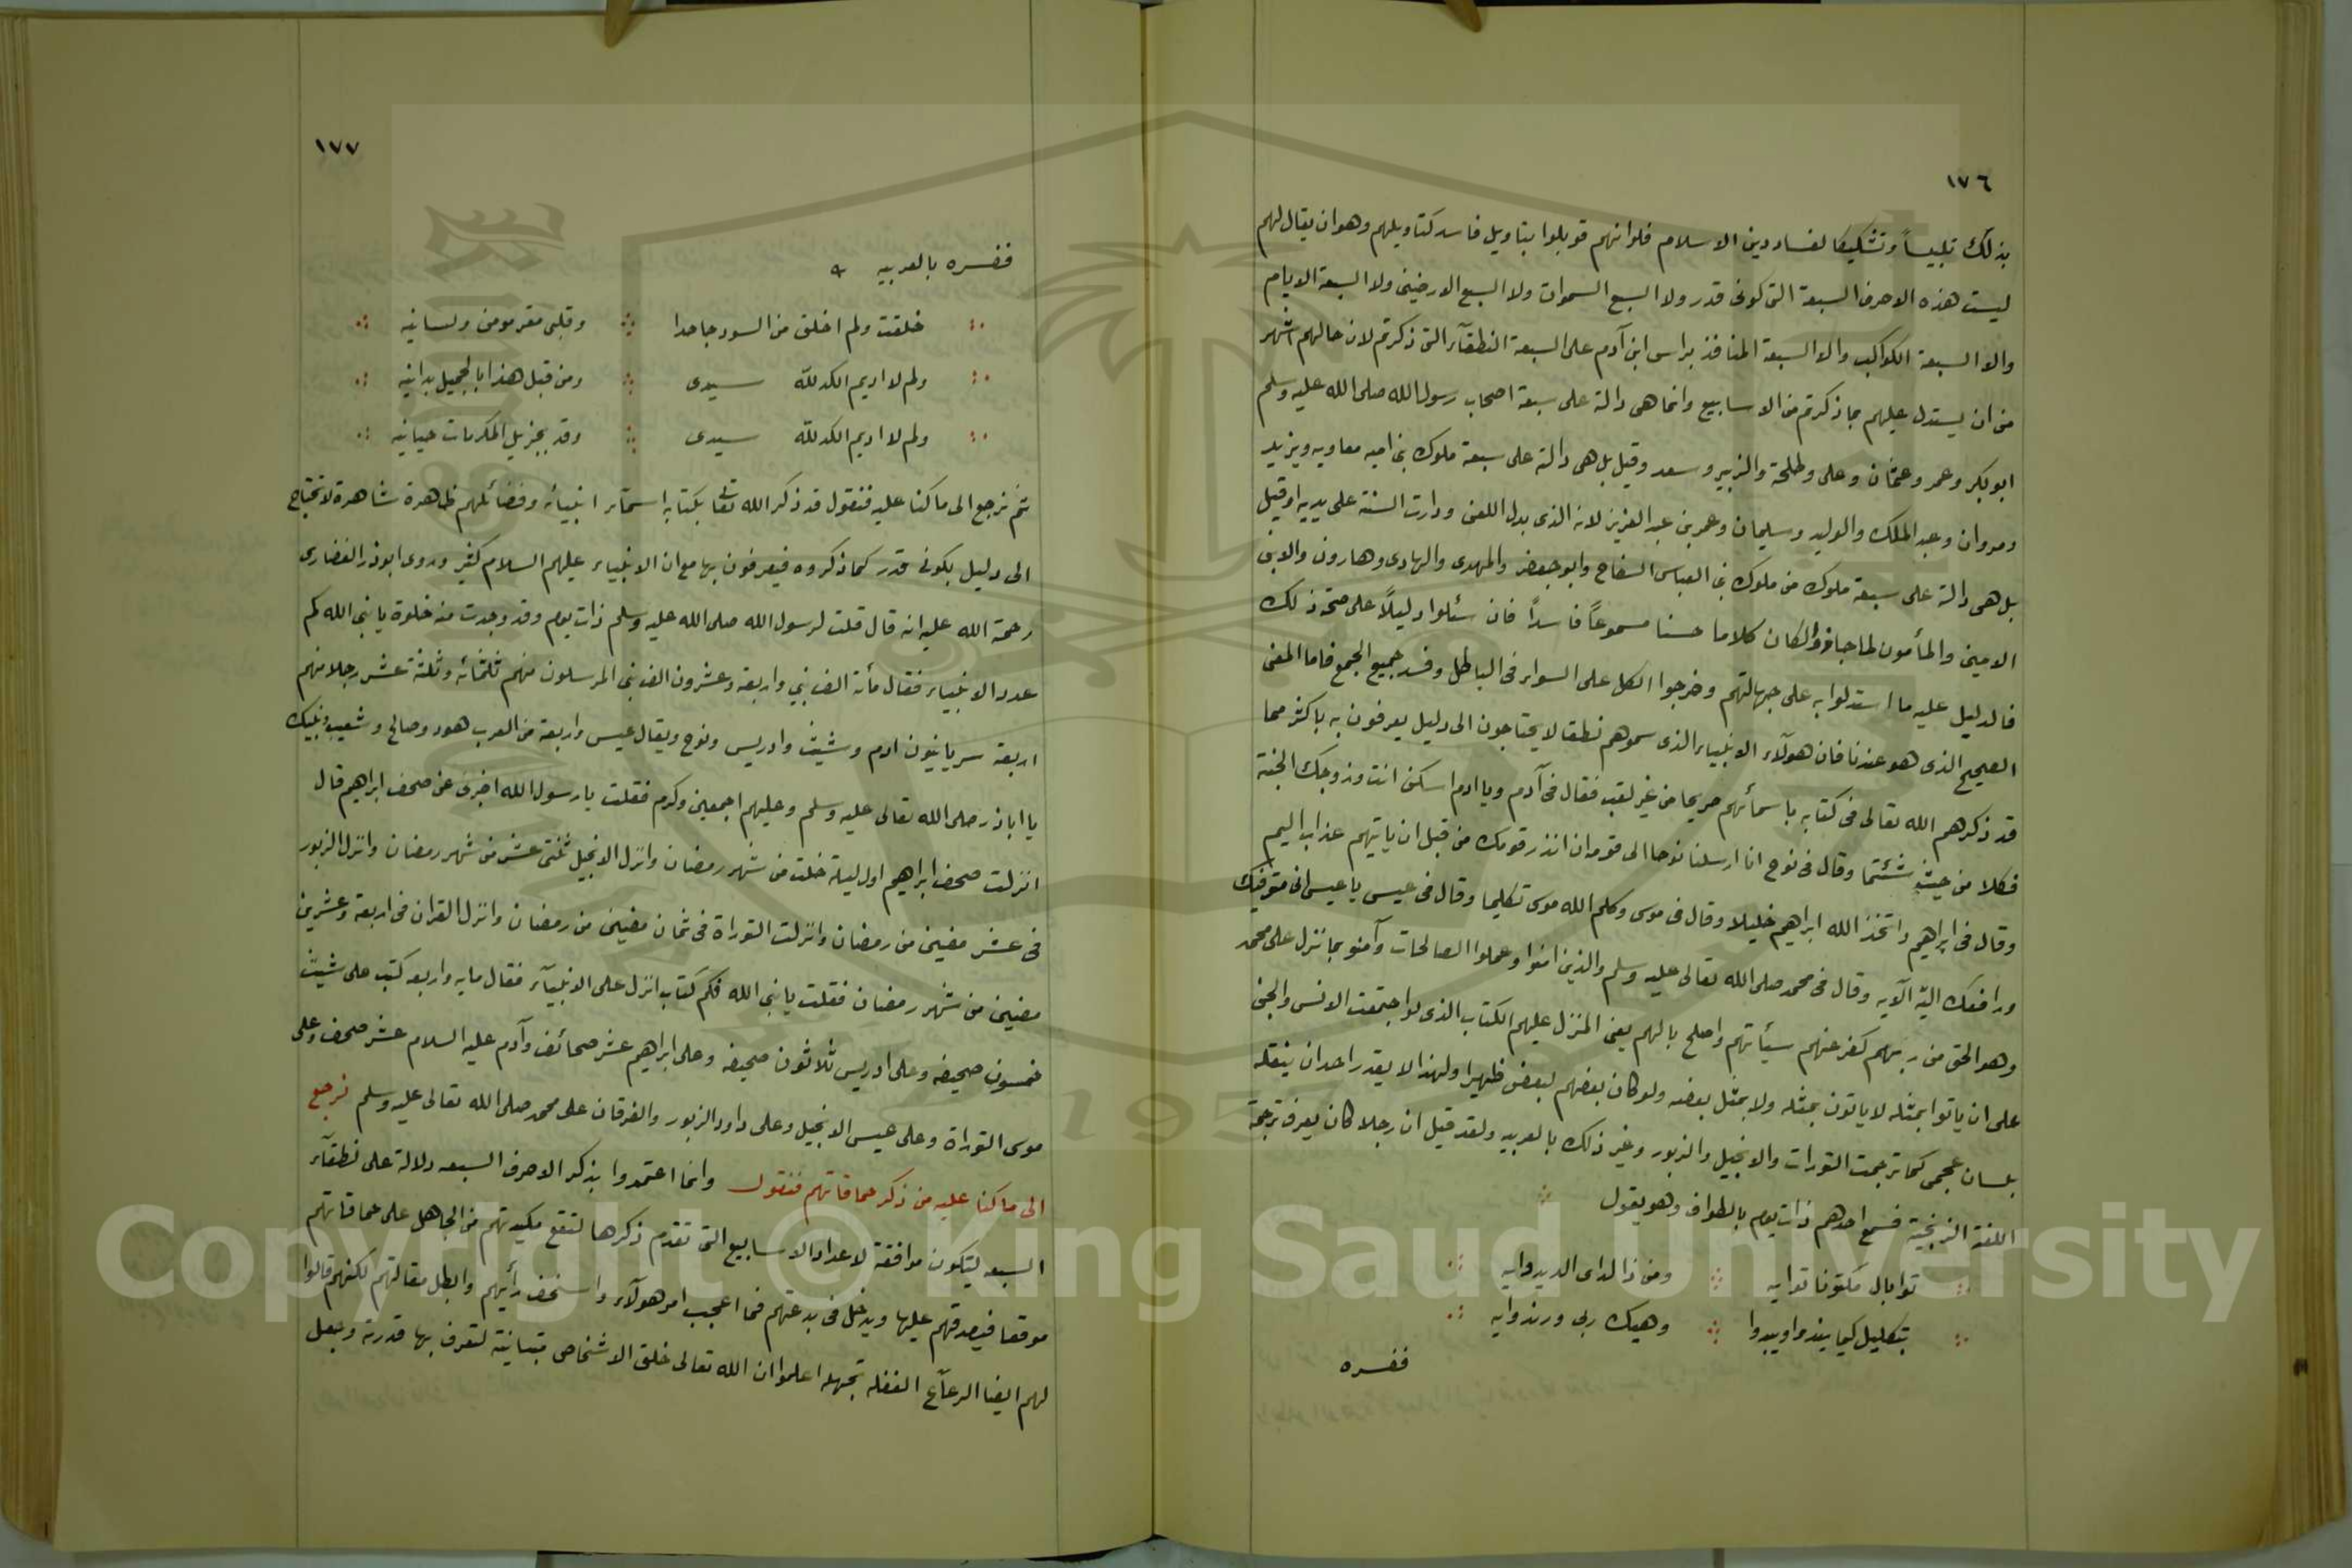 ١٧٦
بذلك تلبيساً وتشكيكا لفساد دين الاسلام فلو انهم قوبلوا بتاويل فاسد كتاويلهم وهو ان يقال لهم
ليست هذه الاحرف السبعة التي كوني قدر ولا السبع السموات ولا السبع الارضين ولا السبعة الايام
والا السبعة الكواكب والا السبعة المنافذ براس ابن آدم على السبعة النطقآء التي ذكرتم لان حالهم اشهر
من ان يستدل عليهم بما ذكرتم من الاسابيع وانما هي دالة على سبعة اصحاب رسول الله صلى الله عليه وسلم
ابوبكر وعمر وعثمان وعلى وطلحة والزبير وسعد وقيل بل هي دالة على سبعة ملوك بني اميه معاويه ويزيد
ومروان وعبد الملك والوليد وسليمان وعمر بن عبد العزيز لانه الذى بدل اللعن ودارت السنة على يديه او قيل
بل هي دالة على سبعة ملوك من ملوك بني العباس السفاح وابو جعفر والمهدى والهادى وهارون والابن
الامين والمأمون لما جاز ولكان كلاما حسنا مسموعاً فاسداً فان سئلوا دليلاً على صحة ذلك
فالدليل عليه ما استدلوا به على جهالتهم وخرجوا الكل على السواء في الباطل وفسد جميع الجمع فاما المعنى
الصحيح الذى هو عندنا فان هولآء الانبياء الذى سموهم نطقا لا يحتاجون الى دليل يعرفون به باكثر مما
قد ذكرهم الله تعالى في كتابه باسمائهم صريحا من غير لقب فقال في آدم ويا ادم اسكن انت وزوجك الجنة
فكلا من حيث شئتما وقال في نوح انا ارسلنا نوحا الى قومه ان انذر قومك من قبل ان ياتيهم عذاب اليم
وقال في ابراهيم واتخذ الله ابراهيم خليلا وقال في موسى وكلم الله موسى تكليما وقال في عيسى يا عيسى اني متوفيك
ورافعك الىّ الآيه وقال في محمد صلى الله تعالى عليه وسلم والذين امنوا وعملوا الصالحات وآمنو بما نزل على محمد
وهو الحق من ربهم كفر عنهم سيأتهم واصلح بالهم يعني المنزل عليهم الكتاب الذى لو اجتمعت الانس والجن
على ان ياتوا بمثله لا ياتون بمثله ولا بمثل بعضه ولو كان بعضهم لبعض ظهيرا ولهذا لا يقدر احد ان ينقله
بلسان عجمى كما ترجمت التورات والانجيل والزبور وغير ذلك بالعربيه ولقد قيل ان رجلا كان يعرف ترجمة
اللغة الزنجية فسمع احدهم ذات يوم بالطواف وهو يقول
توابال مكتونا توايه ومن ذا لداى الديدوايه
بتكليل كيما وهيك ربى ورندوايه
ففسره
١٧٧
ففسره بالعربيه
خلقت ولم اخلق من السود جاحدا وقلبى مقر مومن ولسانيه
ولم لا اديم الكد لله سيدى ومن قبل هذا بالجميل بدانيه
ولم لا اديم الكد لله سيدى وقد بجزيل المكرمات حبانيه
ثم نرجع الى ما كنا عليه فنقول قد ذكر الله تعا بكتابه اسمآء انبيائه وفضائلهم ظاهرة شاهرة لا تحتاج
الى دليل بكوني قدر كما ذكروه فيعرفون بها مع ان الانبياء عليهم السلام كثير وروى ابوذر الغفارى
رحمة الله عليه انه قال قلت لرسول الله صلى الله عليه وسلم ذات يوم وقد وجدت منه خلوة يا نبى الله كم
عدد الانبياء فقال مأة الف نبي واربعة وعشرون الف نبى المرسلون منهم ثلثمائه وثلثة عشر رجلا منهم
اربعة سريانيون ادم وشيث وادريس ونوح ويقال عيسى واربعة من العرب هود وصالح وشعيب ونبيك
يا اباذر صلى الله تعالى عليه وسلم وعليهم اجمعين وكرم فقلت يا رسول الله اخبرنى عن صحف ابراهيم قال
انزلت صحف ابراهيم اول ليلة خلت من شهر رمضان وانزل الانجيل ثنتى عشر من شهر رمضان وانزل الزبور
في عشر مضين من رمضان وانزلت التوراة في ثمان مضين من رمضان وانزل القران في اربعة وعشرين
مضين من شهر رمضان فقلت يا نبى الله فكم كتاب انزل على الانبيآء فقال مايه واربعه كتب على شيث
خمسون صحيفه وعلى ادريس ثلاثون صحيفه وعلى ابراهيم عشر صحائف وآدم عليه السلام عشر صحف وعلى
موسى التوراة وعلى عيسى الانجيل وعلى داود الزبور والفرقان على محمد صلى الله تعالى عليه وسلم نرجع
الى ما كنا عليه من ذكر حماقاتهم فنقول وانما اعتمدوا بذكر الاحرف السبعه دلالة على نطقآء
السبعه ليتكون موافقة لاعداد الاسابيع التي تقدم ذكرها لتقع مكيدتهم من الجاهل على حماقاتهم
موقعا فيصدقهم عليها ويدخل في بدعتهم فما اعجب امر هولآء واسخف رأيهم وابطل مقالتهم لكنهم قالوا
لهم ايضا الرعآع الغفله بجهله اعلموا ان الله تعالى خلق الاشخاص متباينة لتعرف بها قدرته وجعل
Copyright © King Saud University